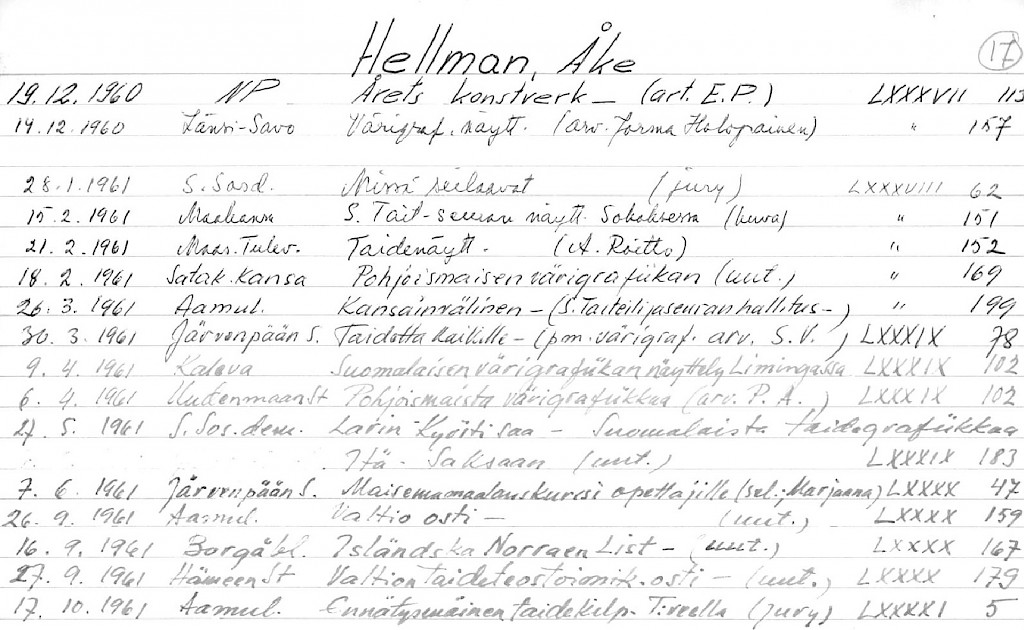 Hellman, Åke 17
19.12.1960 NP Årets konstverk – (art. E.P.) LXXXVII 113
14.12.1960 Länsi-Savo Värigraf. näytt. (arv. Jorma Holopainen) " 157
28.1.1961 S. Sosd. Missä (jury) LXXXVIII 62
15.2.1961 Maakansa S. Tait-seuran näytt. Sokoksessa (kuva) " 151
21.2.1961 Maas. Tulev. Taidenäytt. (A. Roitto) " 152
18.2.1961 Satak. Kansa Pohjoismaisen värigrafiikan (uut.) " 169
26.3.1961 Aamul. Kansainvälinen – (S. Taiteilijaseuran hallitus –) " 199
30.3.1961 Järvenpään S. Taidetta kaikille – (pm. värigraf. arv. S.V.) LXXXIX 78
9.4.1961 Kaleva Suomalaisen värigrafiikan näyttely Limingassa LXXXIX 102
6.4.1961 Uudenmaan St Pohjoismaista värigrafiikkaa (arv. P.A.) LXXXIX 102
27.5.1961 S. Sos. dem. Larin-Kyösti saa – Suomalaista taidegrafiikkaa
Itä-Saksaan (uut.) LXXXIX 183
7.6.1961 Järvenpään S. Maisemamaalauskurssi opettajille (sel.; Marjaana) LXXXX 47
26.9.1961 Aamul. Valtio osti – (uut.) LXXXX 159
16.9.1961 Borgåbl. Isländska Norraen List – (uut.) LXXXX 167
27.9.1961 Hämeen St Valtion taideteostoimik. osti – (uut.) LXXXX 179
17.10.1961 Aamul. Ennätysmäinen taidekilp. T:reella (jury) LXXXXI 5